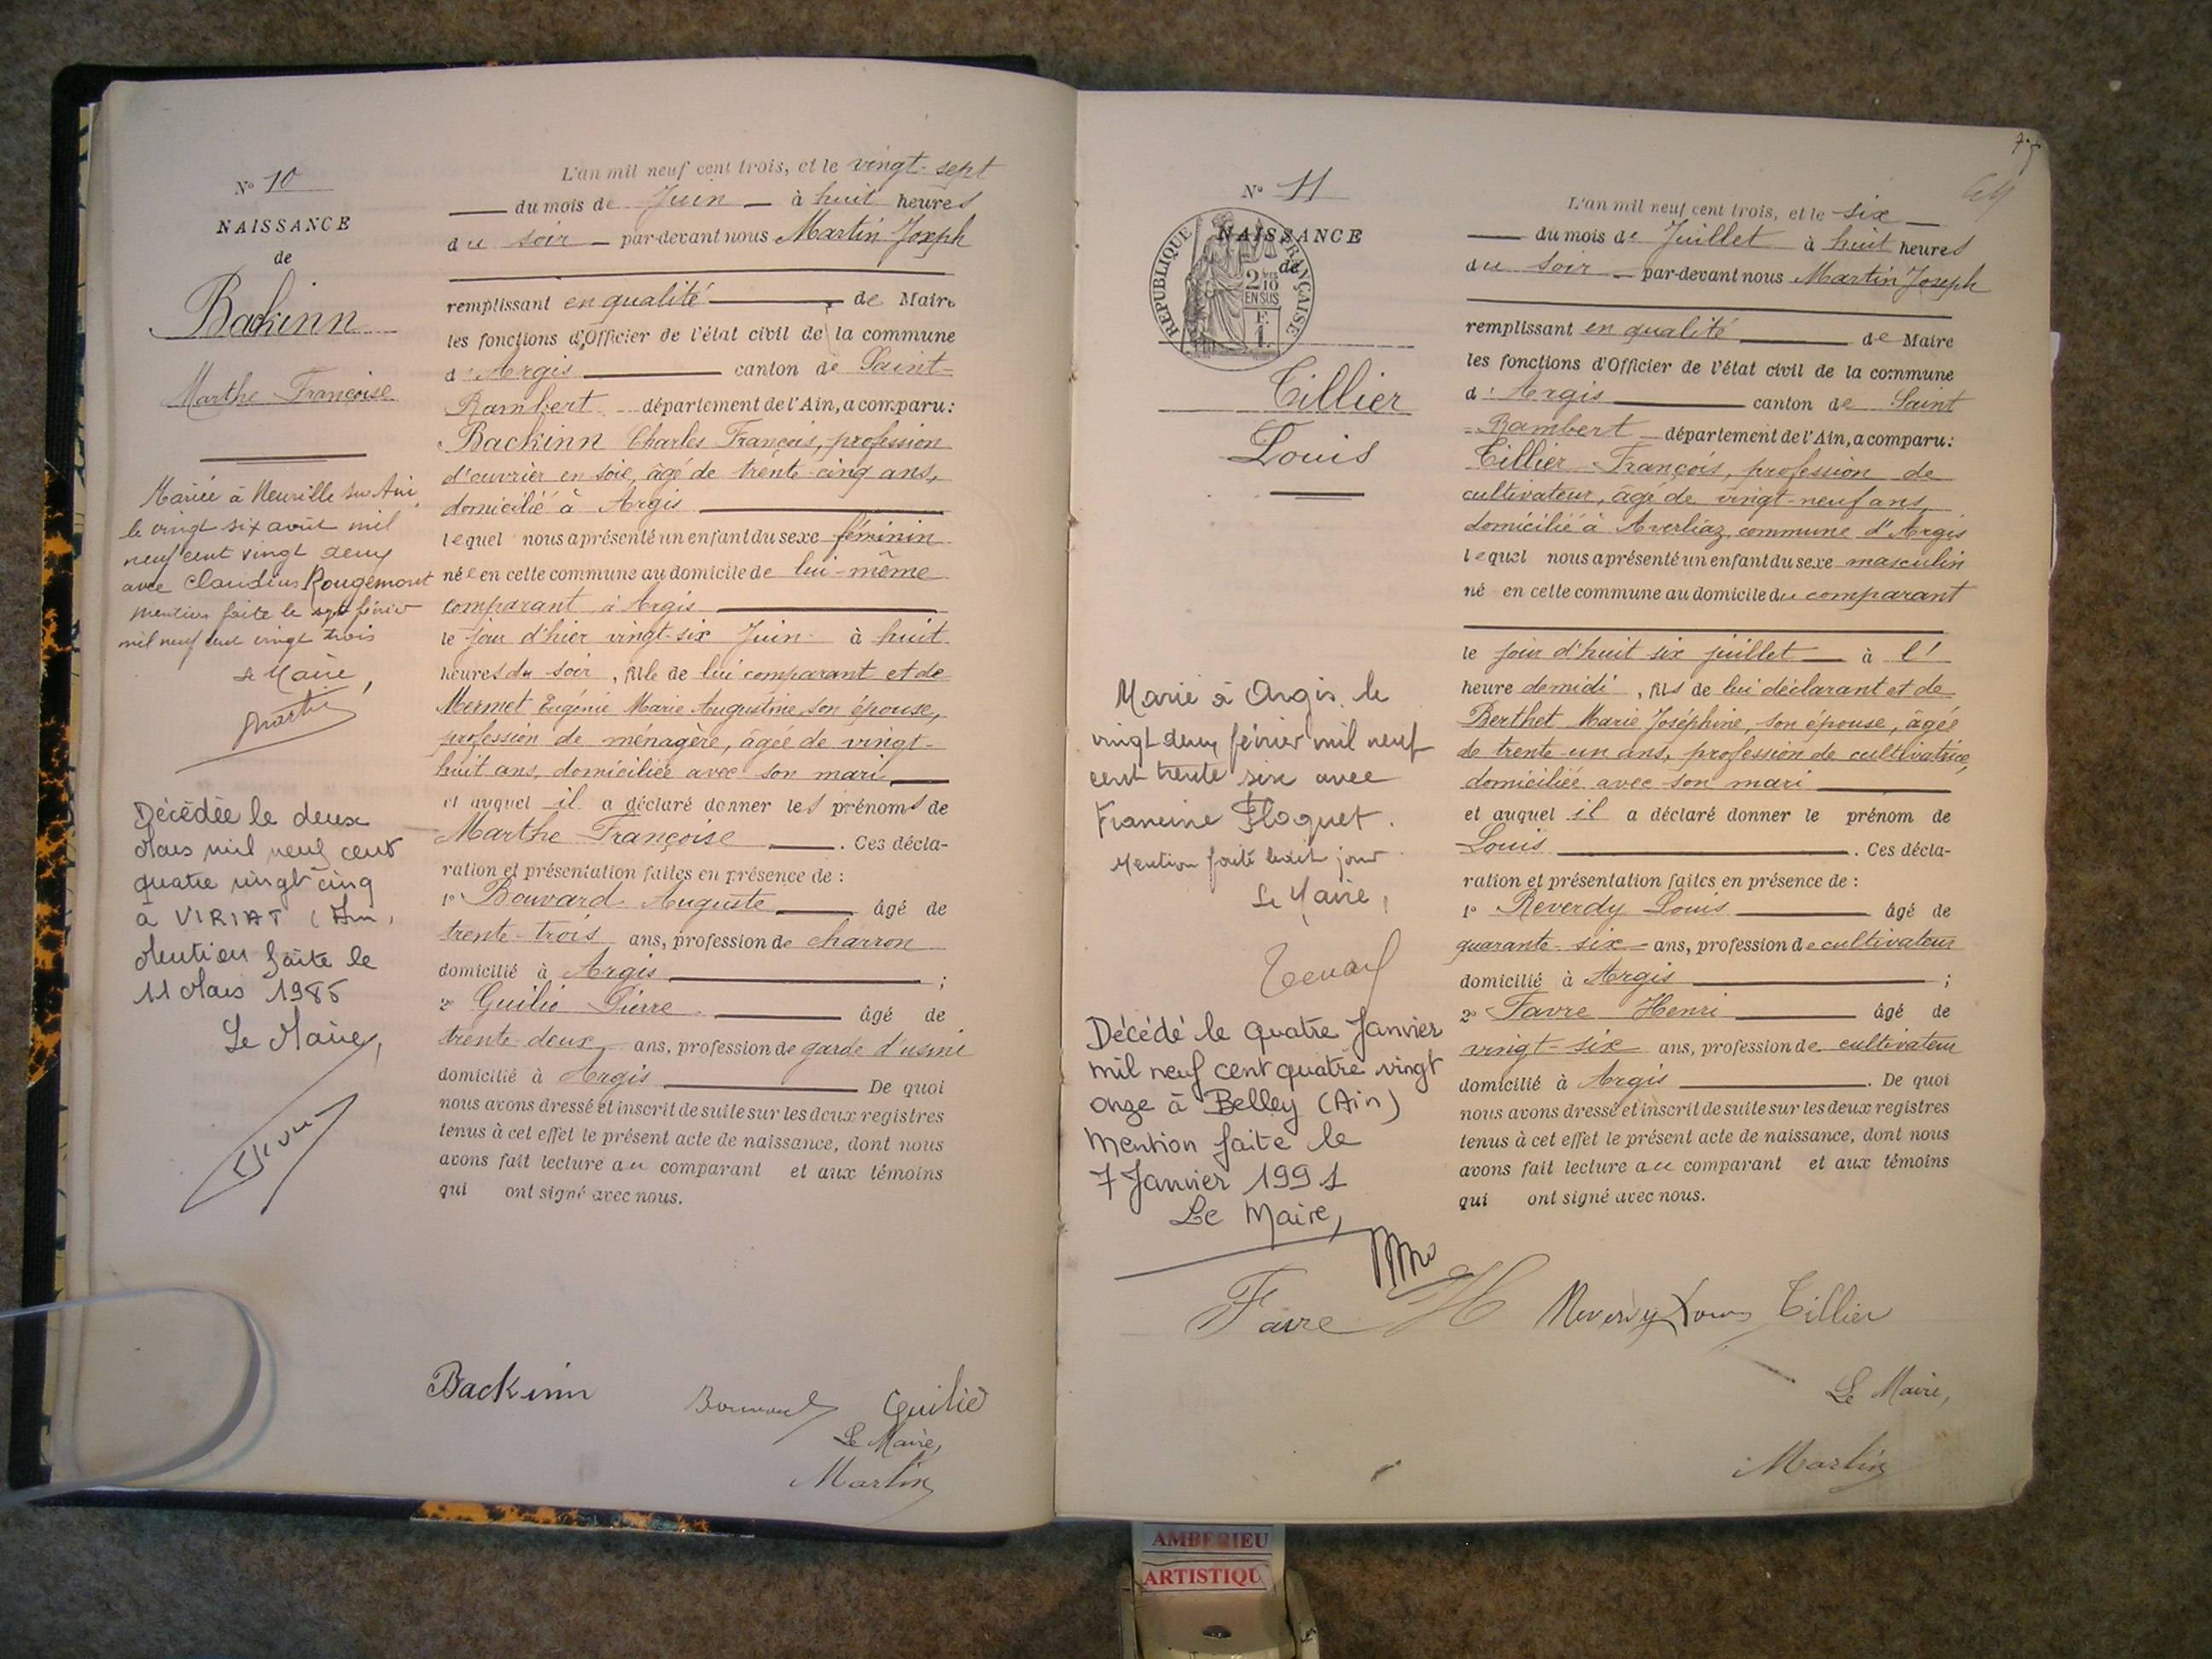 N° 10
NAISSANCE
de
Backinn
Marthe Françoise
Mariée à Neuville sur Ain
le vingt six août mil
neuf cent vingt deux
avec Claudius Rougemont
Mention faite le sept février
mil neuf cent vingt trois
Le Maire,
Martin
Décédée le deux
Mars mil neuf cent
quatre vingt cinq
à VIRIAT (Ain,
Mention faite le
11 Mars 1985
Le Maire,
L'an mil neuf cent trois, et le vingt-sept
du mois de Juin à huit heures
du soir par-devant nous Martin Joseph
remplissant en qualité de Maire
les fonctions d'Officier de l'état civil de la commune
d'Argis canton de Saint-
Rambert département de l'Ain, a comparu:
Backinn Charles François, profession
d'ouvrier en soie, âgé de trente-cinq ans,
domicilié à Argis
lequel nous a présenté un enfant du sexe féminin
née en cette commune au domicile de lui-même
comparant à Argis
le jour d'hier vingt-six Juin à huit
heures du soir, fille de lui comparant et de
Mermet Eugénie Marie Augustine son épouse,
profession de ménagère, âgée de vingt-
huit ans, domiciliée avec son mari
et auquel il a déclaré donner les prénoms de
Marthe Françoise. Ces décla-
ration et présentation faites en présence de :
1° Bouvard Auguste âgé de
trente-trois ans, profession de charron
domicilié à Argis ;
2° Guilié Pierre âgé de
trente deux ans, profession de garde d'usine
domicilié à Argis De quoi
nous avons dressé et inscrit de suite sur les deux registres
tenus à cet effet le présent acte de naissance, dont nous
avons fait lecture au comparant et aux témoins
qui ont signé avec nous.
Backinn Bouvard Guilié
Le Maire,
Martin
N° 11
NAISSANCE
de
REPUBLIQUE FRANÇAISE
2/10
EN SUS
Tillier
Louis
Marié à Argis le
vingt deux février mil neuf
cent trente six avec
Francine Floquet.
Mention faite ledit jour
Le Maire,
Décédé le quatre Janvier
mil neuf cent quatre vingt
onze à Belley (Ain)
Mention faite le
7 Janvier 1991
Le Maire,
L'an mil neuf cent trois, et le six
du mois de Juillet à huit heures
du soir par-devant nous Martin Joseph
remplissant en qualité de Maire
les fonctions d'Officier de l'état civil de la commune
d'Argis canton de Saint
-Rambert département de l'Ain, a comparu:
Tillier François, profession de
cultivateur, âgé de vingt-neuf ans,
domicilié à Averliaz, commune d'Argis
lequel nous a présenté un enfant du sexe masculin
né en cette commune au domicile du comparant
le jour d'huit six juillet à l'
heure de midi, fils de lui déclarant et de
Berthet Marie Joséphine, son épouse, âgée
de trente-un ans, profession de cultivatrice,
domiciliée avec son mari
et auquel il a déclaré donner le prénom de
Louis. Ces décla-
ration et présentation faites en présence de :
1° Reverdy Louis âgé de
quarante-six ans, profession de cultivateur
domicilié à Argis ;
2° Favre Henri âgé de
vingt-six ans, profession de cultivateur
domicilié à Argis. De quoi
nous avons dressé et inscrit de suite sur les deux registres
tenus à cet effet le présent acte de naissance, dont nous
avons fait lecture au comparant et aux témoins
qui ont signé avec nous.
Favre H Reverdy Louis Tillier
Le Maire,
Martin
AMBERIEU
ARTISTIQU